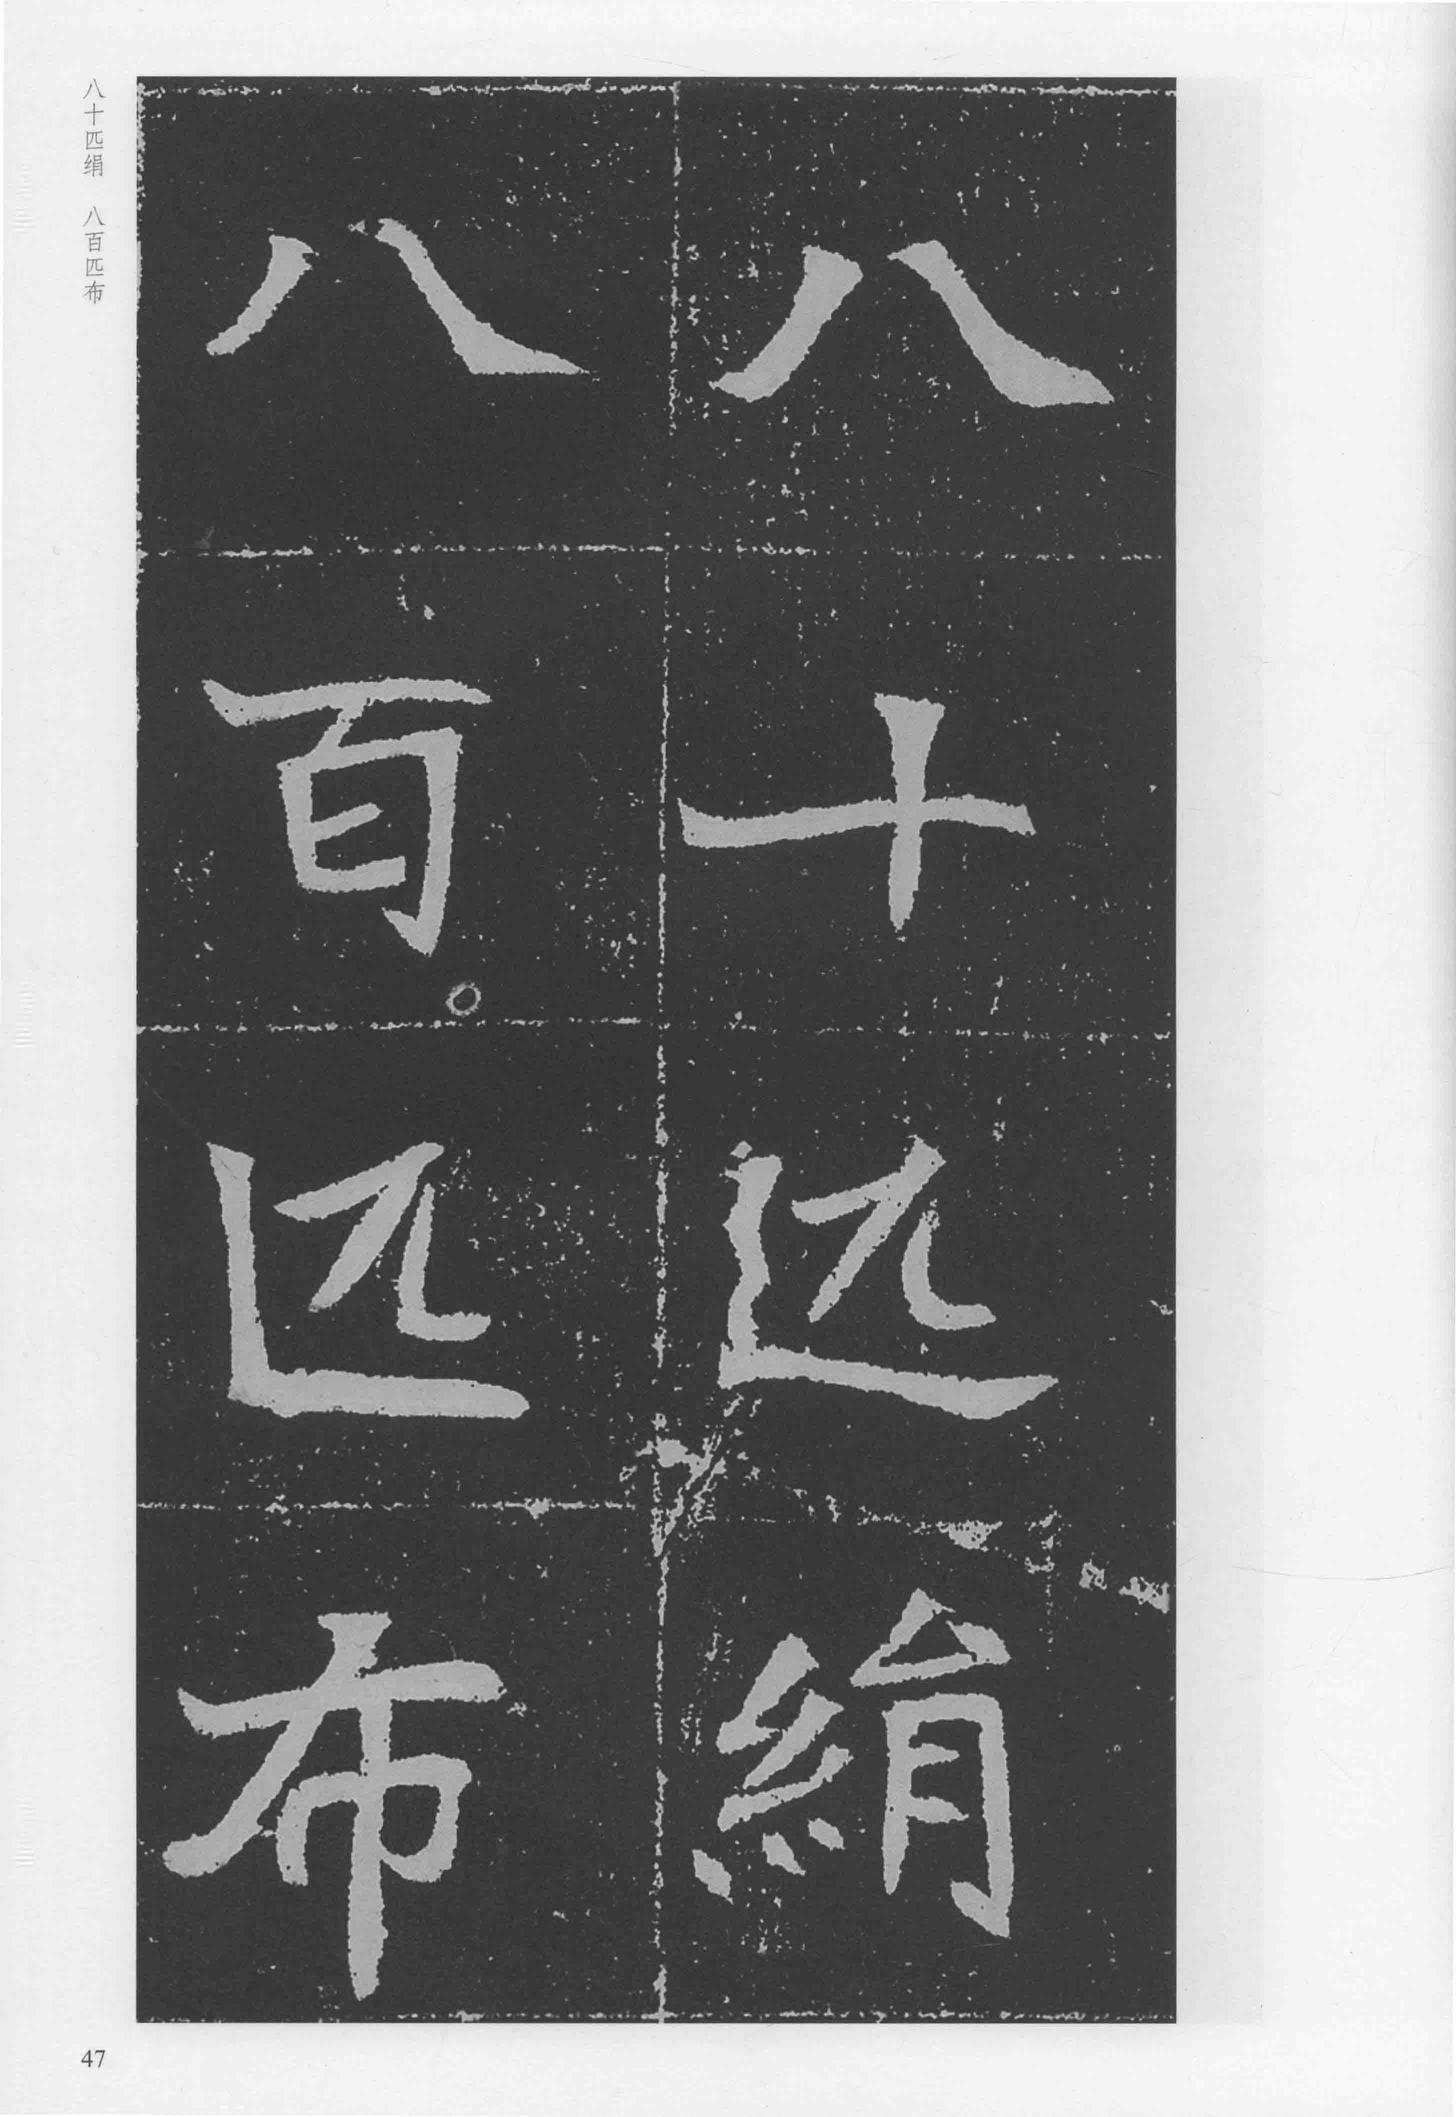 八十匹絹
八百匹布
八十匹绢 八百匹布
47